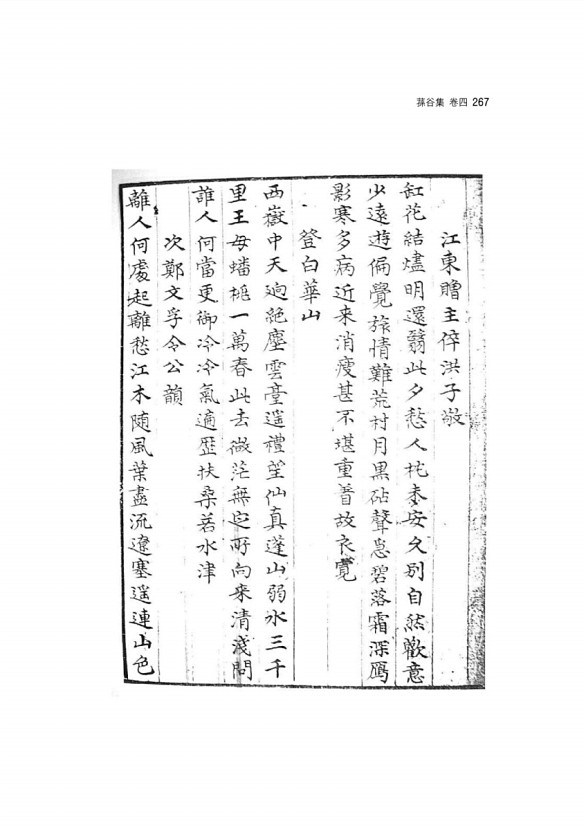 蓀谷集 卷四 267
江東贈主倅洪子敬
缸花結燼明還翳此夕愁人枕未安久别自然歡意
少遠遊偏覺旅情難荒村月黑砧聲急碧落霜深鴈
影寒多病近来消瘦甚不堪重着故衣寬
登白華山
西嶽中天逈絶塵雲臺遥禮望仙真蓬山弱水三千
里王母蟠桃一萬春此去微茫無定所向来清淺問
誰人何當更御冷冷氣適歷扶桑若水津
次鄭文孚令公韻
離人何處起離愁江木随風葉盡流遼塞遥連山色